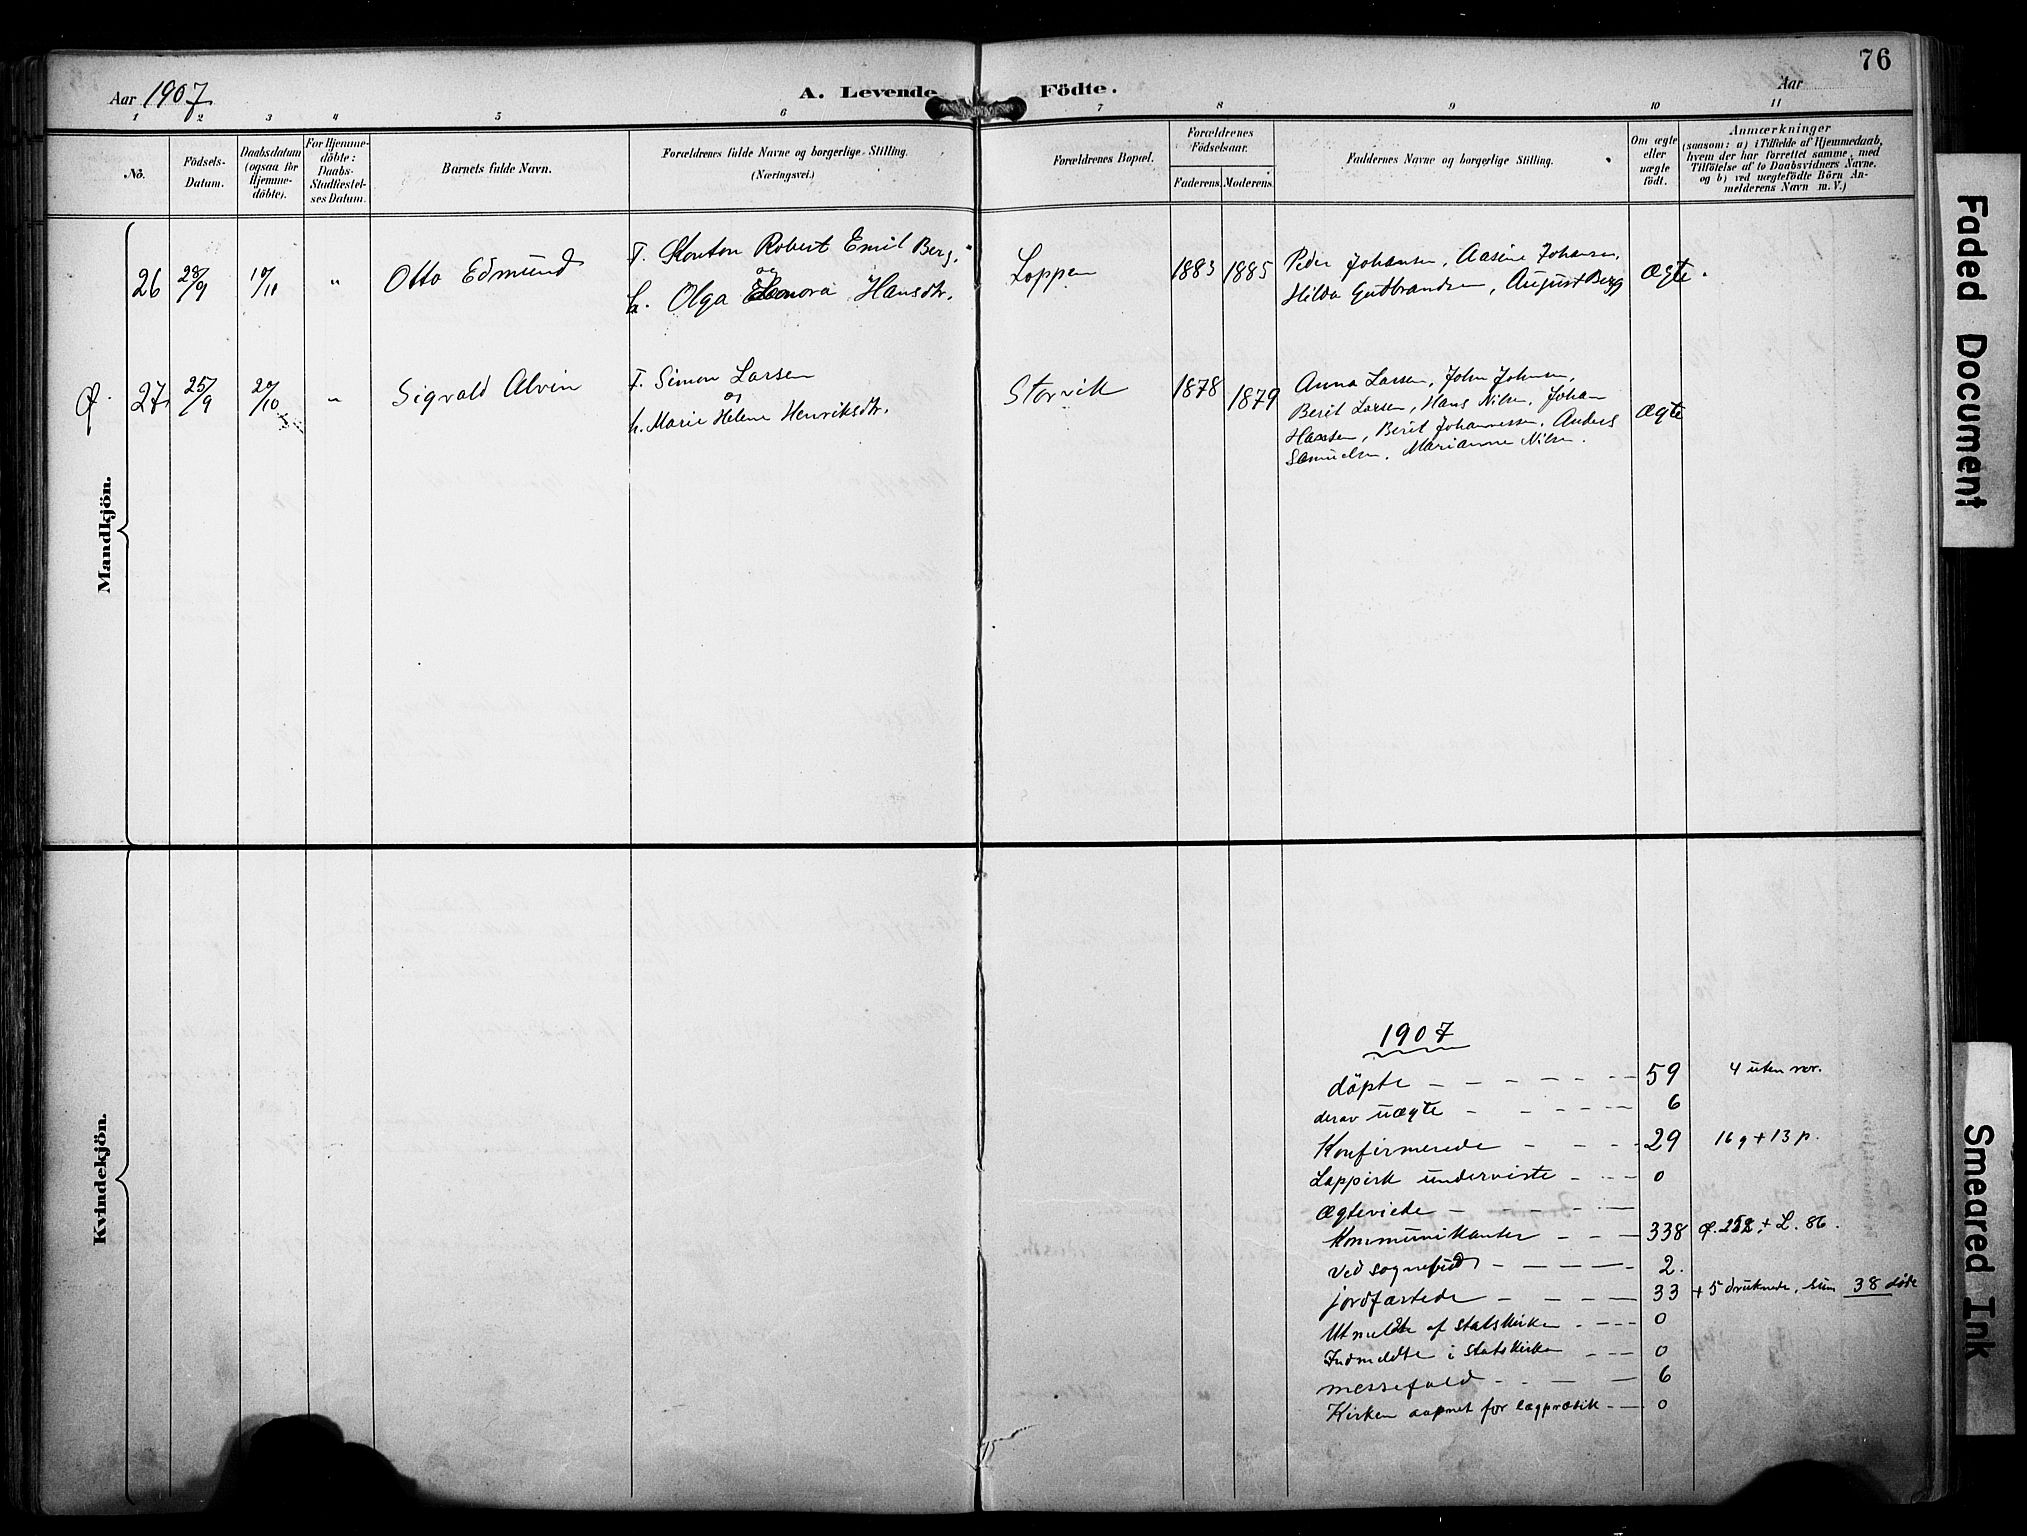 76
Aar 1907
A. Levende Födte.
Aar
1 2 3 4 5 6 7 8 9 10 11
No.
Födsels-
Datum.
Daabsdatum
(ogsaa for
Hjemme-
döbte).
For Hjemme-
döbte:
Daabs-
Stadfæstel-
ses Datum.
Barnets fulde Navn.
Forældrenes fulde Navne og borgerlige Stilling.
(Næringsvei.)
Forældrenes Bopæl.
Forældrenes
Födselsaar.
Faderens. Moderens.
Faddernes Navne og borgerlige Stilling.
Om ægte
eller
uægte
födt.
Anmærkninger
(saasom: a) i Tilfælde af Hjemmedaab,
hvem der har forrettet samme, med
Tilföielse af to Daabsvidners Navne.
og b) ved uægtefödte Börn An-
melderens Navn m. V.)
Mandkjön.
26 28/9 10/11 " Otto Edmund
F. Skouton Robert Emil Berg.
og
h. Olga Eleonora Hansdtr.
Loppen 1883 1885
Peder Johansen, Aasine Johansen,
Hilda Gudbrandsen, August Berg
Ægte.
Ø. 27 25/9 20/10 " Sigvald Alvin
F. Simon Larsen
og
h. Marie Helene Henriksdtr.
Storvik 1878 1879
Anna Larsen, John Johnsen,
Berit Larsen, Hans Nilsen, Johan
Hansen, Berit Johannessen, Anders
Samuelsen, Marianne Nilsen.
Ægte
Kvindekjön.
1907
døpte 59 4 uten vor.
derav uægte 6
Konfirmerede 29 16 g + 13 p.
Lappisk underviste 0
Ægteviede
Kommunikanter 338 Ø. 252 + L. 86.
Ved sognebud 2.
jordfæstede 33 + 5 druknede, sum 38 døde
Utmeldte af statskirken 0
Indmeldte i statskirken 0
messefald 6
Kirken aapnet for lægprædik 0
Faded Document
Smeared Ink